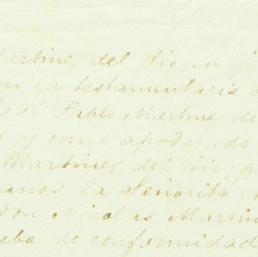 Martinez del Rio, en
en la testamentaria
José Pablo Martinez de
y como apoderado
Martinez del Rio; p
unos la Señorita
Don Nicolas Martin
eba de conformidad